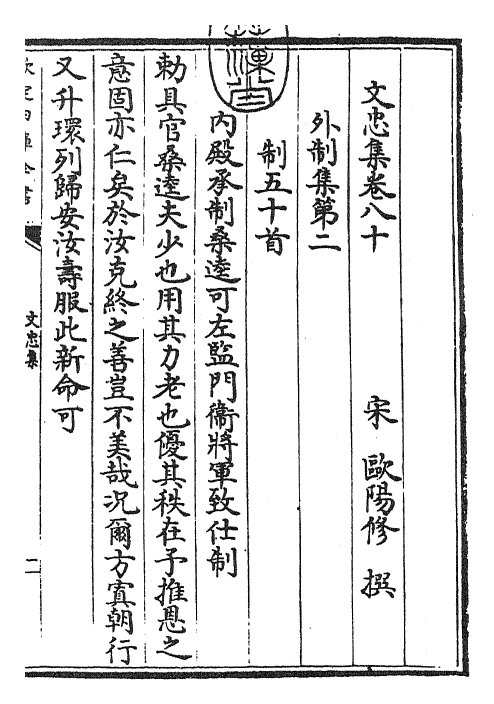 文忠集卷八十
宋 歐陽修 撰
外制集第二
制五十首
內殿承制桑逵可左監門衛將軍致仕制
勅具官桑逵夫少也用其力老也優其秩在予推恩之
意固亦仁矣於汝克終之善豈不美哉况爾方寘朝行
又升環列歸安汝壽服此新命可
文忠集